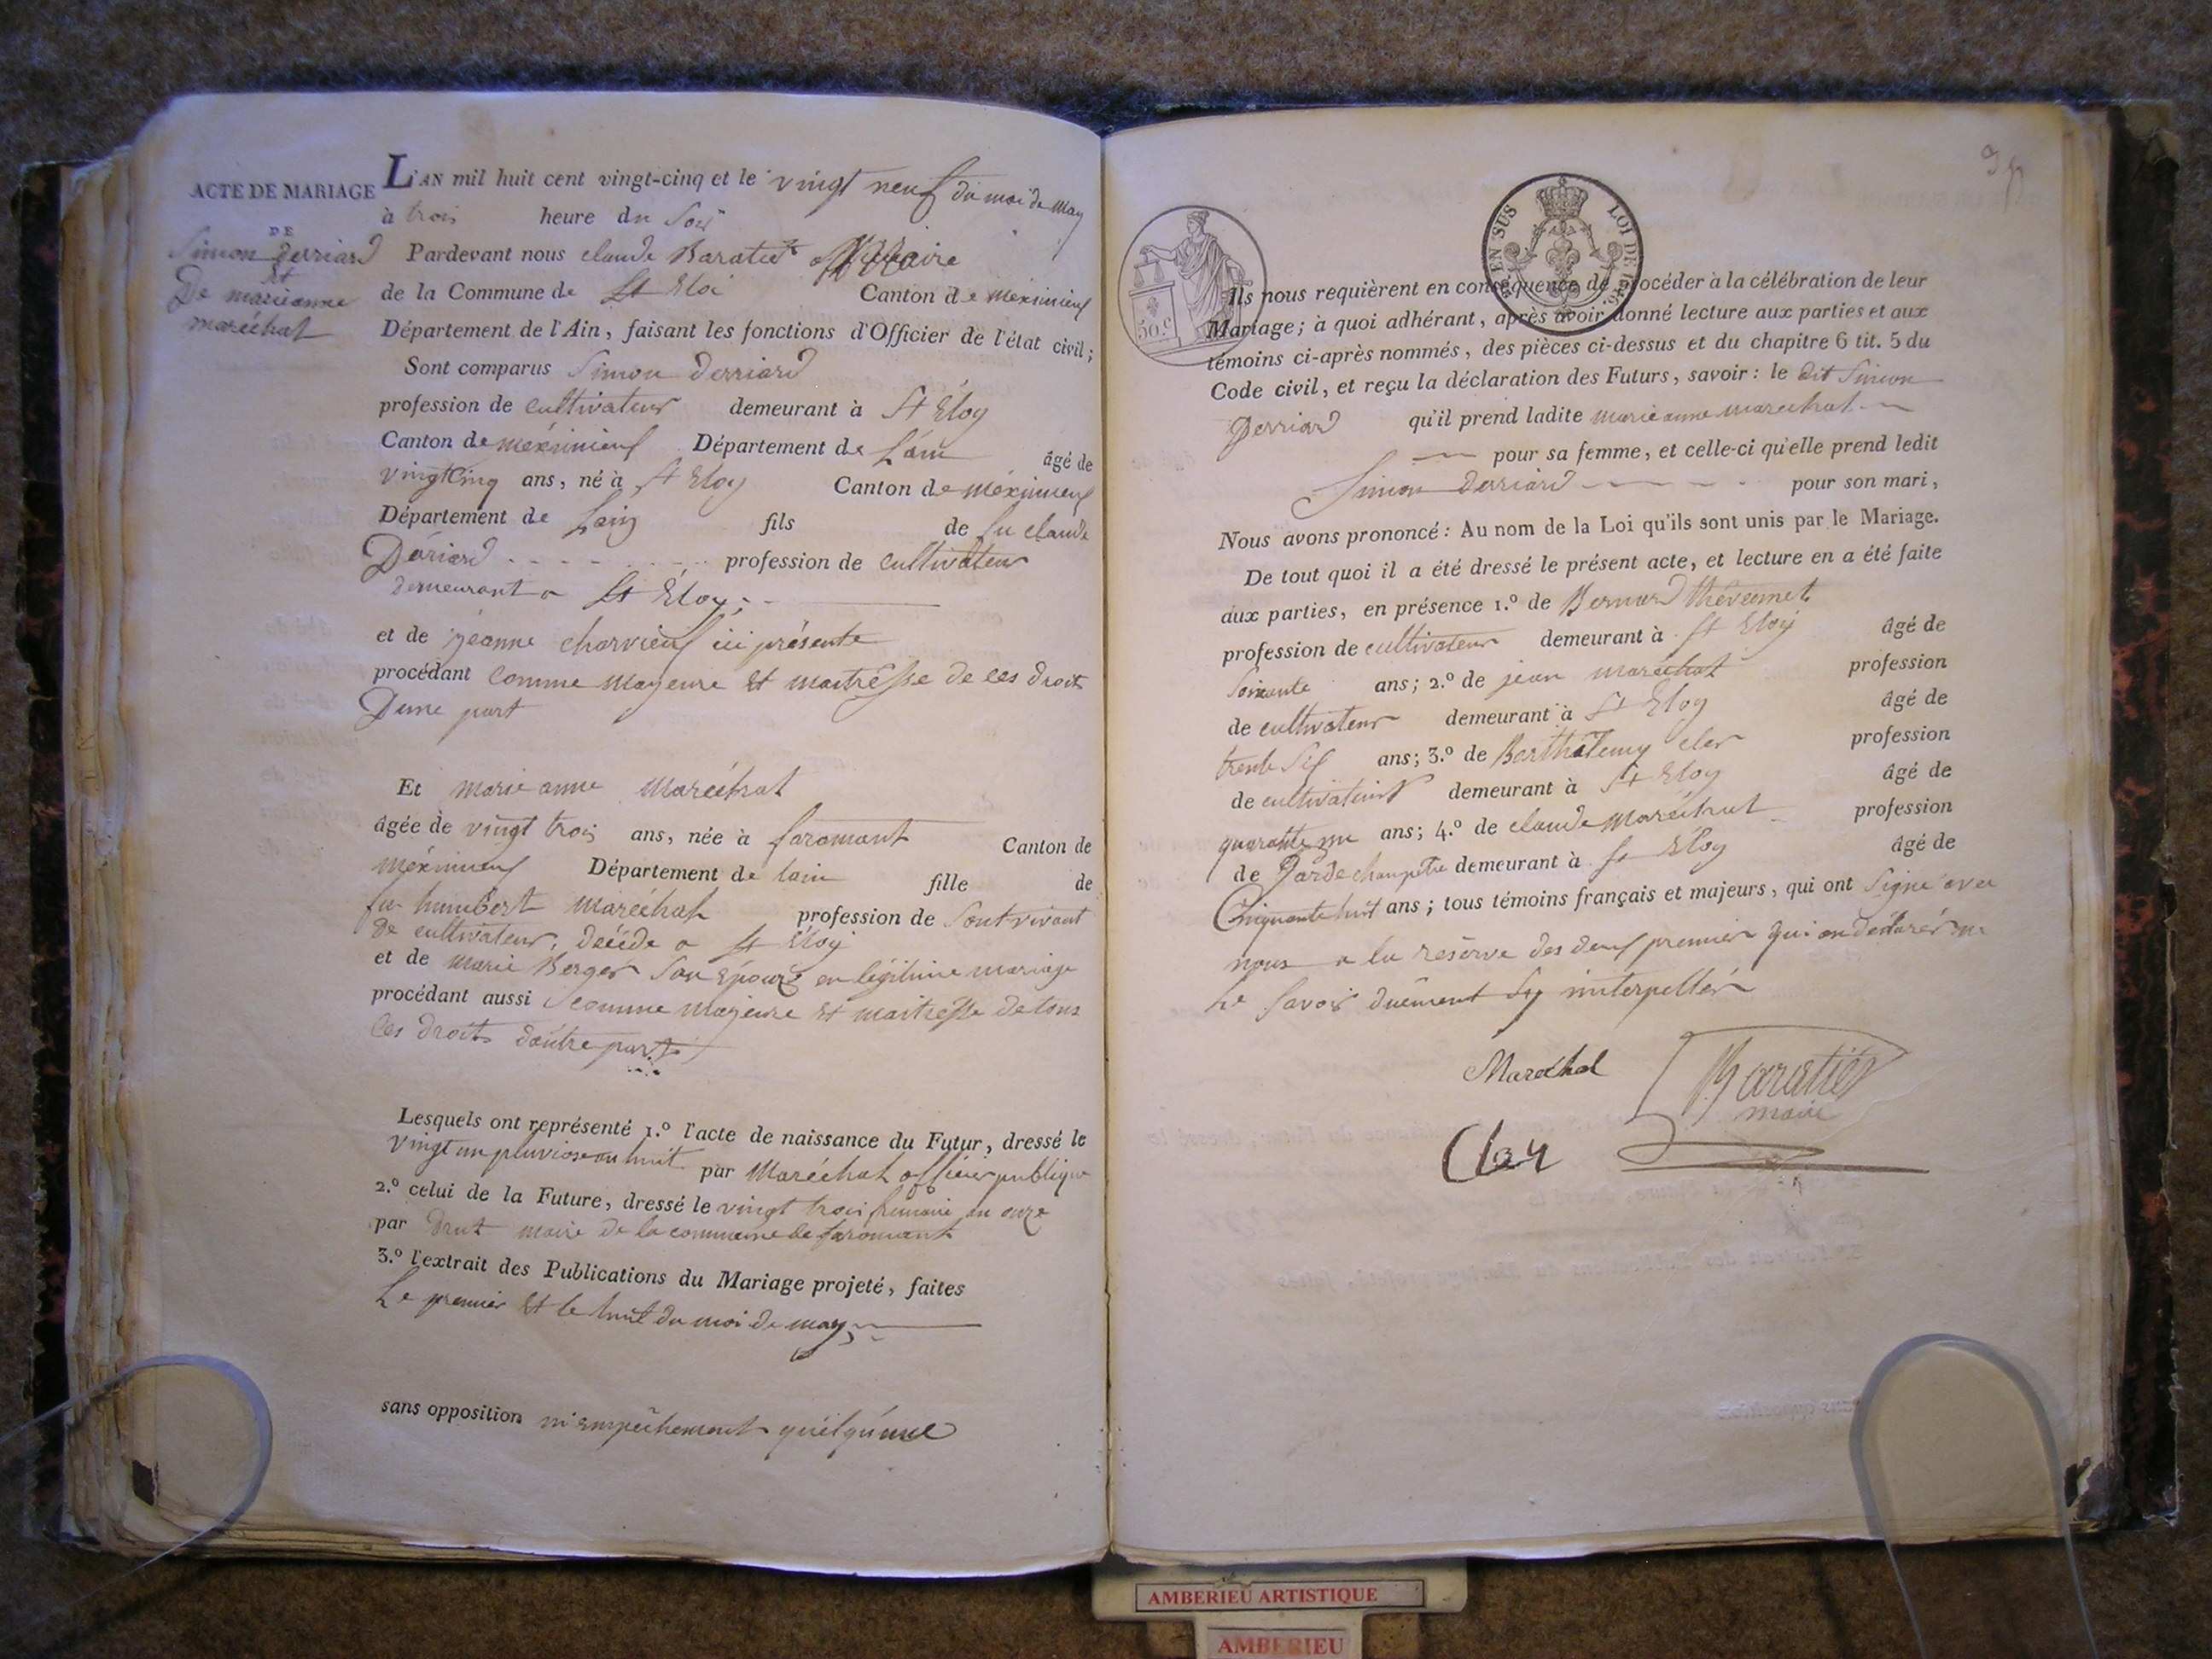 ACTE DE MARIAGE
DE
Simon Derriard
Et
De marieanne
maréchal
L'AN mil huit cent vingt-cinq et le vingt neuf du moi de may
à trois heure du Soir
Pardevant nous claude Baratier maire
de la Commune de St Eloi Canton de meximieux
Département de l'Ain, faisant les fonctions d'Officier de l'état civil;
Sont comparus Simon Derriard
profession de cultivateur demeurant à St Eloy
Canton de meximieux Département de Lain âgé de
vingt cinq ans, né à St Eloy Canton de meximieux
Département de Lain fils de fu claude
Dériard profession de cultivateur
demeurant a St Eloy;
et de jeanne charvieux ici présente
procédant comme mageure et maitresse de ces droits
Dune part
Et marie anne Maréchal
âgée de vingt trois ans, née à faramant Canton de
méximieux Département de lain fille de
fu humbert maréchal profession de Sont vivant
de cultivateur, décéde a St Eloy
et de Marie Berger Son épouze en légitime mariage
procédant aussi comme mageure et maitresse de tous
Ces droits dautre part
Lesquels ont représenté 1.º l'acte de naissance du Futur, dressé le
vingt un pluviose an huit par Maréchal officier publique
2.º celui de la Future, dressé le vingt trois frimaire an onze
par Drut maire de la commune de faramant
3.º l'extrait des Publications du Mariage projeté, faites
Le premier et le huit du moi de may
sans opposition ni empêchement quelqu'une
EN SUS LOI DE
50.c
Ils nous requièrent en conséquence de procéder à la célébration de leur
Mariage; à quoi adhérant, après avoir donné lecture aux parties et aux
témoins ci-après nommés, des pièces ci-dessus et du chapitre 6 tit. 5 du
Code civil, et reçu la déclaration des Futurs, savoir: le dit Simon
Derriard qu'il prend ladite marieanne marechal
pour sa femme, et celle-ci qu'elle prend ledit
Simon Derriard pour son mari,
Nous avons prononcé: Au nom de la Loi qu'ils sont unis par le Mariage.
De tout quoi il a été dressé le présent acte, et lecture en a été faite
aux parties, en présence 1.º de Bernard thévenet
profession de cultivateur demeurant à St Eloy âgé de
Soixante ans; 2.º de jean maréchal profession
de cultivateur demeurant à St Eloy âgé de
trente Six ans; 3.º de Barthélemy cler profession
de cultivateur demeurant à St Eloy âgé de
quarante un ans; 4.º de claude Maréchal profession
de Garde champetre demeurant à St Eloy âgé de
Cinquante huit ans; tous témoins français et majeurs, qui ont Signé avec
nous a la reserve des deux premier qui on déclarér ne
le Savoir duement interpellér
Maréchal
Baratier
maire
Cler
AMBERIEU ARTISTIQUE
AMBERIEU